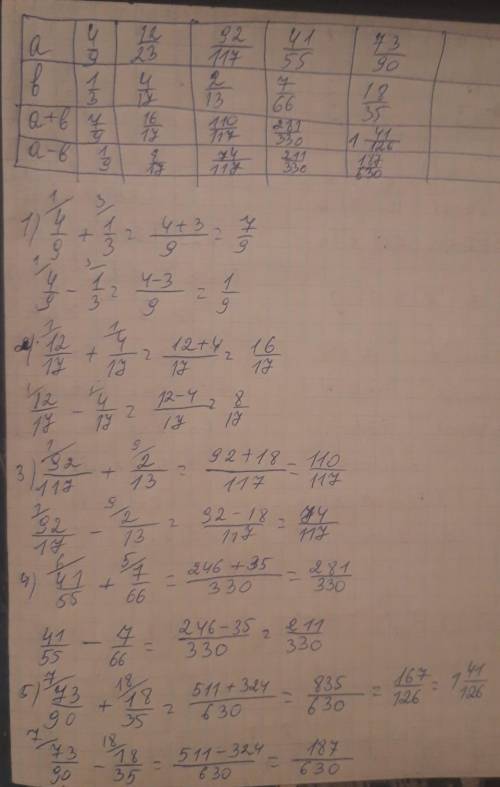 a 4/9 12/23 92/117 41/55 73/90
в 1/3 4/17 2/13 7/66 18/35
a+в 7/9 16/17 110/117 281/330 1 41/126
a-в 1/9 8/17 74/117 211/330 187/630
1) 1/ 4/9 + 3/ 1/3 = 4+3/9 = 7/9
1/ 4/9 - 3/ 1/3 = 4-3/9 = 1/9
2) 1/ 12/17 + 1/ 4/17 = 12+4/17 = 16/17
1/ 12/17 - 1/ 4/17 = 12-4/17 = 8/17
3) 1/ 92/117 + 9/ 2/13 = 92+18/117 = 110/117
1/ 92/17 - 9/ 2/13 = 92-18/117 = 74/117
4) 6/ 41/55 + 5/ 7/66 = 246+35/330 = 281/330
41/55 - 7/66 = 246-35/330 = 211/330
5) 7/ 73/90 + 18/ 18/35 = 511+324/630 = 835/630 = 167/126 = 1 41/126
7/ 73/90 - 18/ 18/35 = 511-324/630 = 187/630